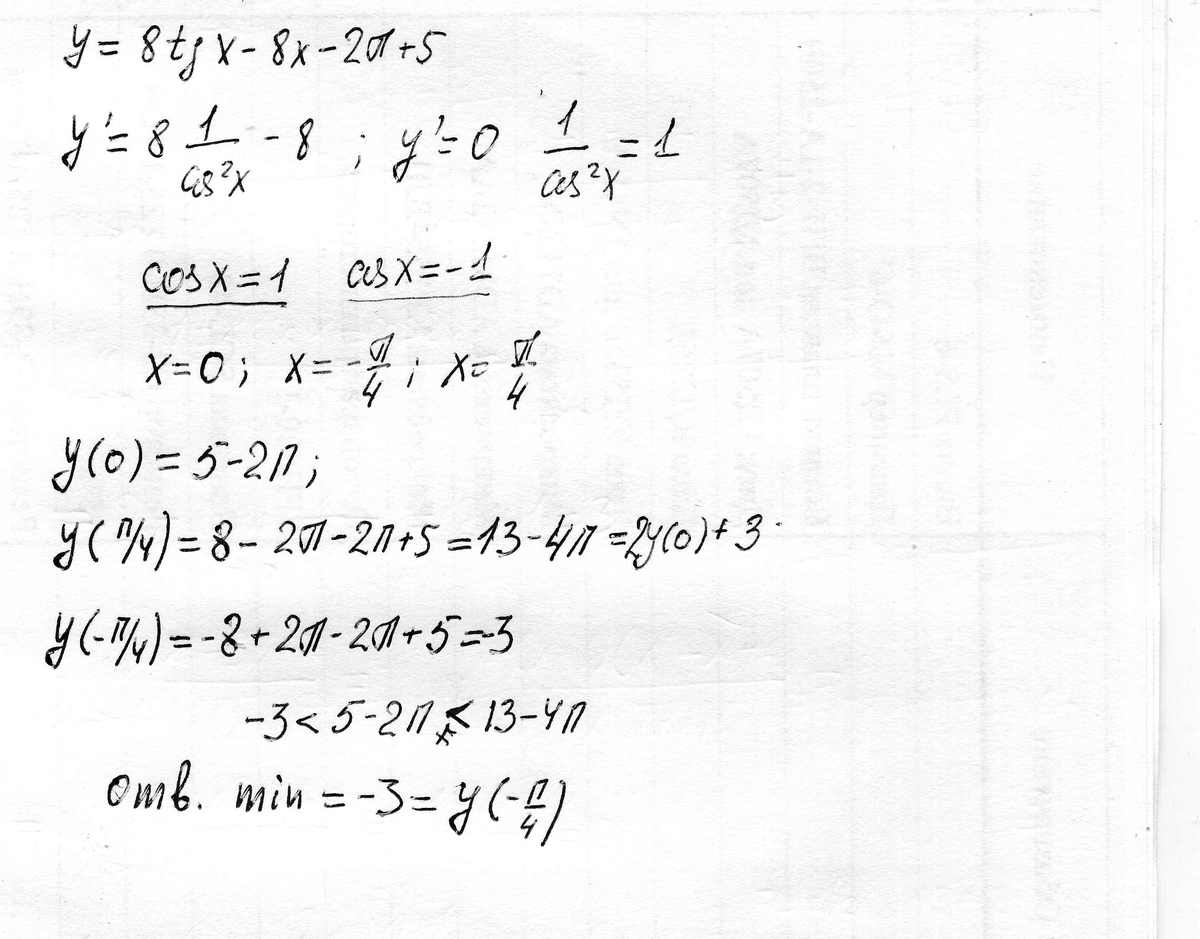 y = 8 tg x - 8x - 2π + 5
y' = 8 1/cos²x - 8 ; y' = 0 1/cos²x = 1
cos x = 1 cos x = -1
x = 0 ; x = -π/4 ; x = π/4
y(0) = 5 - 2π ;
y(π/4) = 8 - 2π - 2π + 5 = 13 - 4π = 2y(0) + 3
y(-π/4) = -8 + 2π - 2π + 5 = -3
-3 < 5 - 2π < 13 - 4π
отв. min = -3 = y(-π/4)